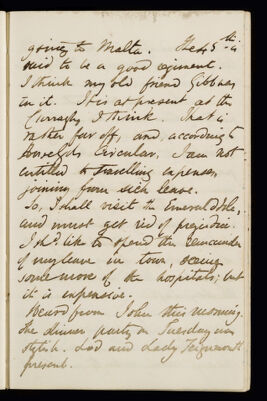 going to Malta. The 45th is
said to be a good regiment.
I think my old friend Gibb was
in it. It is at present at the
Curragh, I think. That is
rather far off, and, according to
Circular, I am not
entitled to travelling expenses,
joining from sick leave.
So, I shall visit the Emerald Isle,
and must get rid of prejudice.
I shd like to spend the remainder
of my leave in town, seeing
some more of the hospitals; but
it is expensive.
Heard from John this morning.
The dinner party on Tuesday was
stylish. Lord and Lady Teignmouth
present.